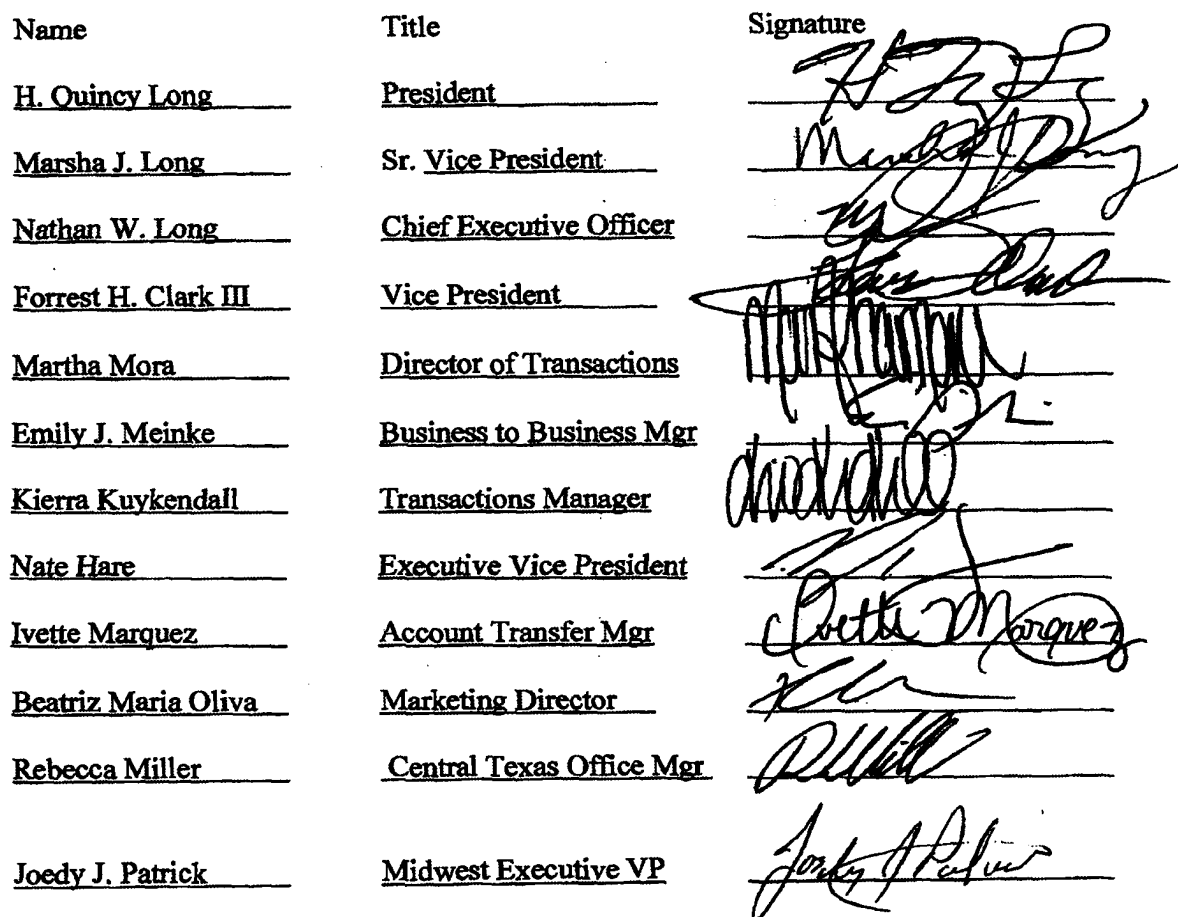 Name Title Signature
H. Quincy Long President
Marsha J. Long Sr. Vice President
Nathan W. Long Chief Executive Officer
Forrest H. Clark III Vice President
Martha Mora Director of Transactions
Emily J. Meinke Business to Business Mgr
Kierra Kuykendall Transactions Manager
Nate Hare Executive Vice President
Ivette Marquez Account Transfer Mgr Ivette Marquez
Beatriz Maria Oliva Marketing Director
Rebecca Miller Central Texas Office Mgr
Joedy J. Patrick Midwest Executive VP